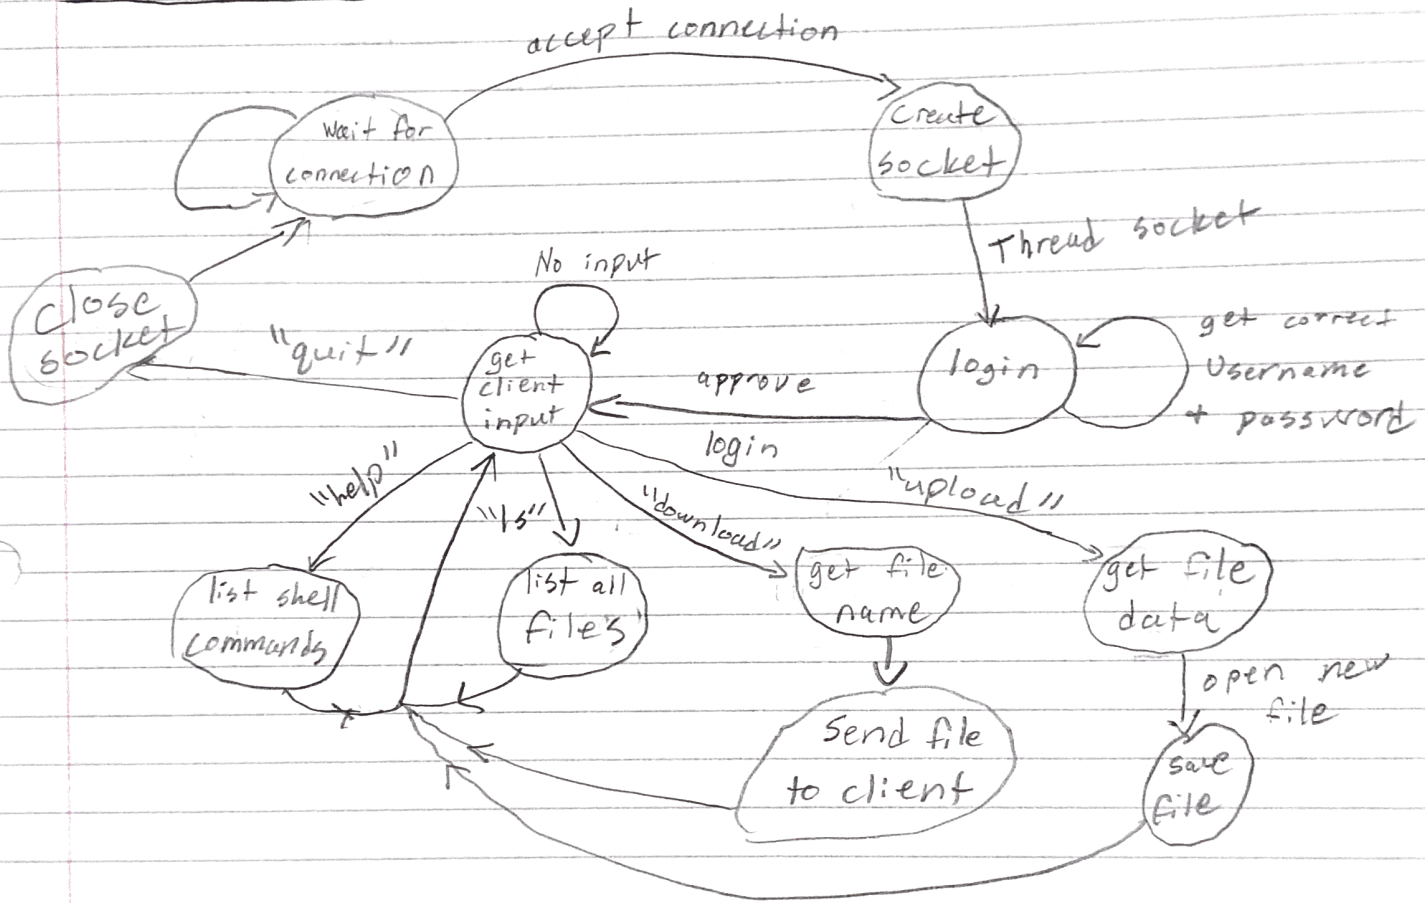 accept connection
wait for
connection
create
socket
Thread socket
No input
close
socket
"quit"
get
client
input
approve
login
login
get correct
Username
+ password
"help"
"ls"
"download"
"upload"
list shell
commands
list all
files
get file
name
get file
data
open new
file
send file
to client
save
file